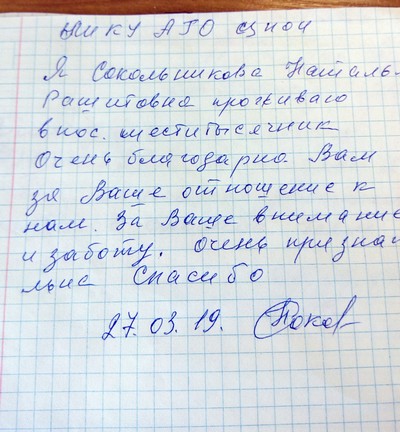 Я Сокольникова Наталь-
Рашитовна проживаю
в пос. шеститысячник
Очень благодарна Вам
за Ваше отношение к
нам. За Ваше внимание
и заботу. очень признат
льна Спасибо
27.03.19.